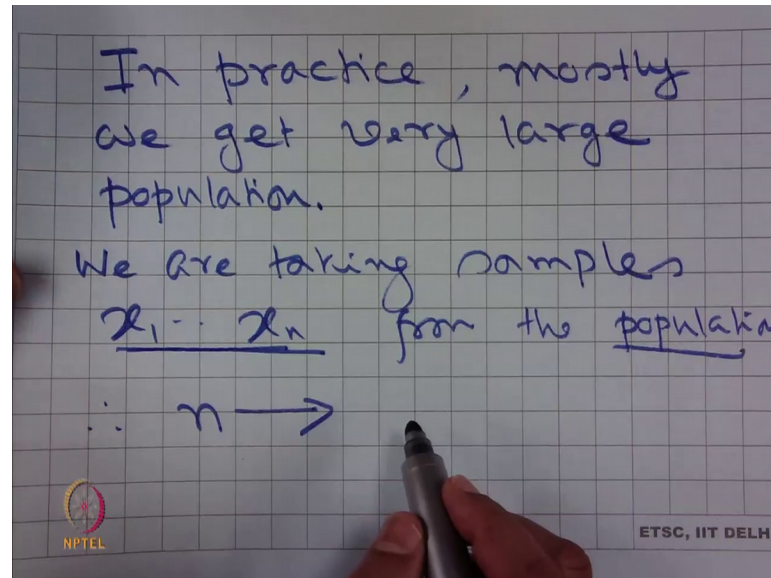 In practice, mostly
we get very large
population.
We are taking samples
x₁ .. xₙ from the populatio
∴ n →
NPTEL
ETSC, IIT DELH